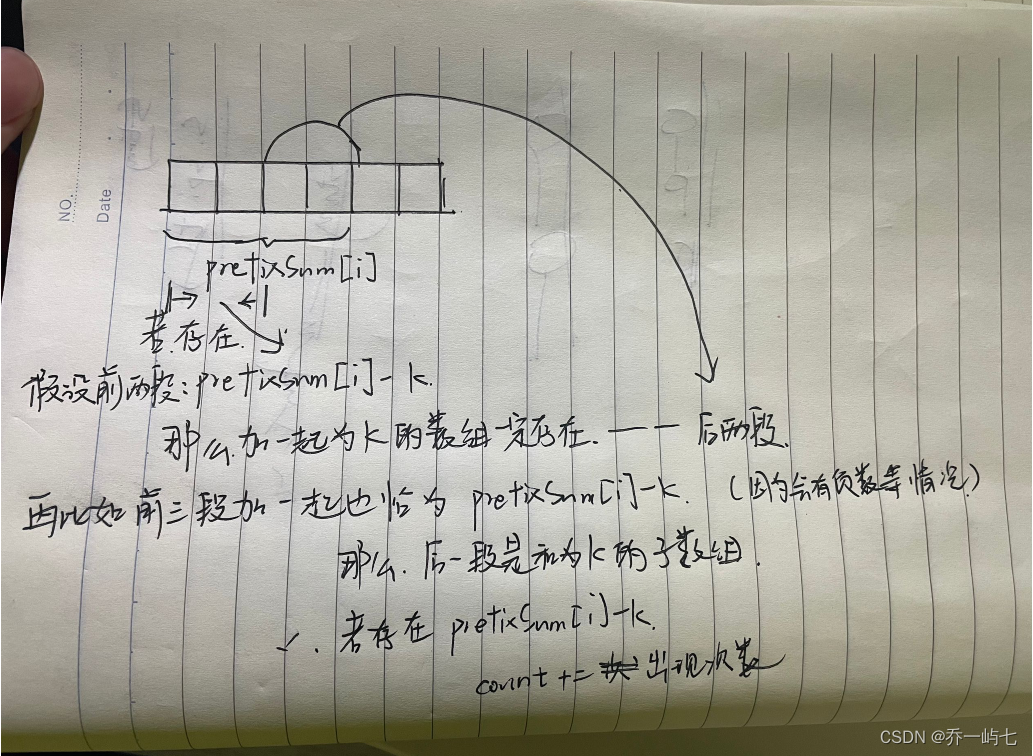 NO.
Date
prefixSum[i]
若存在.
假设前两段:prefixSum[i]-k.
那么.加一起为k的数组一定存在.—— 后两段.
再比如前三段加一起也恰为prefixSum[i]-k.(因为会有负数等情况)
那么.后一段是和为k的子数组.
若存在prefixSum[i]-k.
count += 出现次数
CSDN @乔一屿七